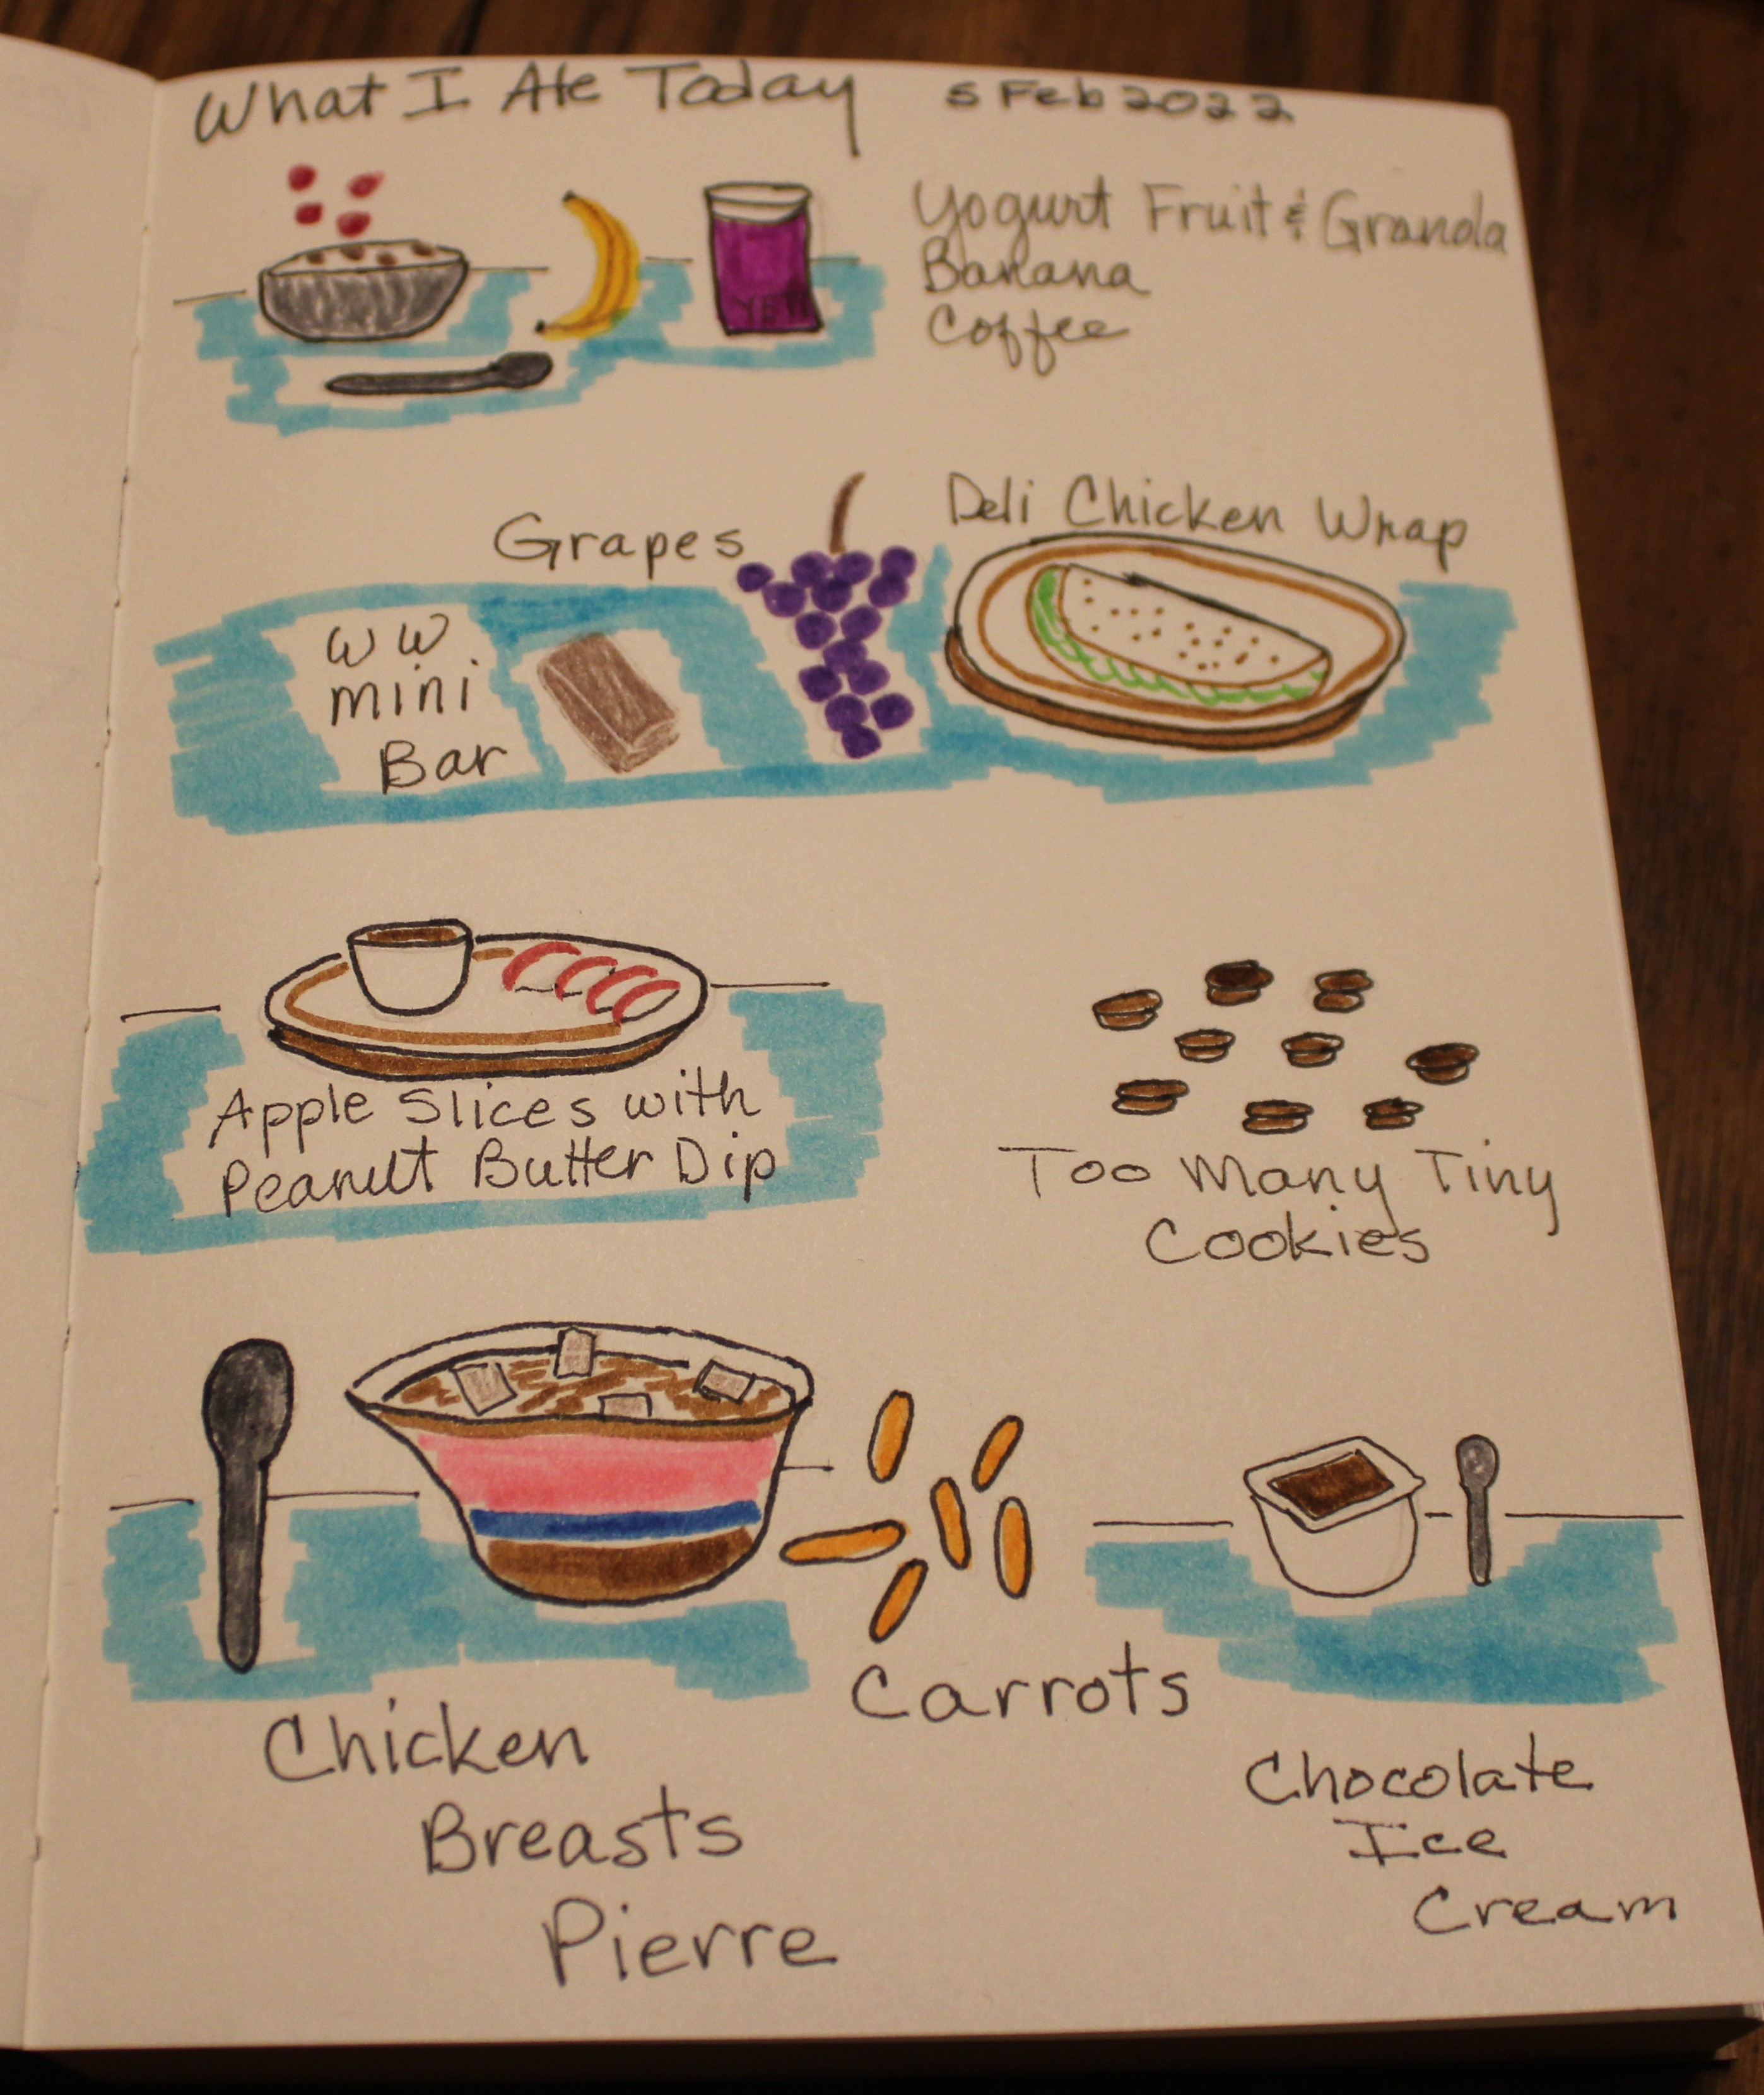 What I Ate Today 5 Feb 2022
Yogurt Fruit & Granola
Banana
Coffee
YETI
Grapes
Deli Chicken Wrap
WW
mini
Bar
Apple Slices with
Peanut Butter Dip
Too Many Tiny
Cookies
Carrots
Chicken
Breasts
Pierre
Chocolate
Ice
Cream